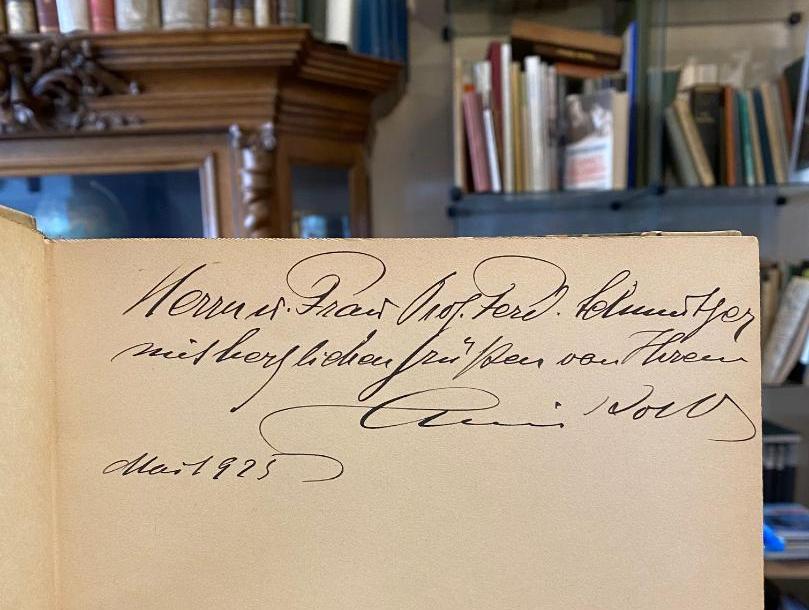 Herrn u. Frau Prof. Ferd. Schmutzer
mit herzlichen Grüßen von Ihrem
Mai 1925